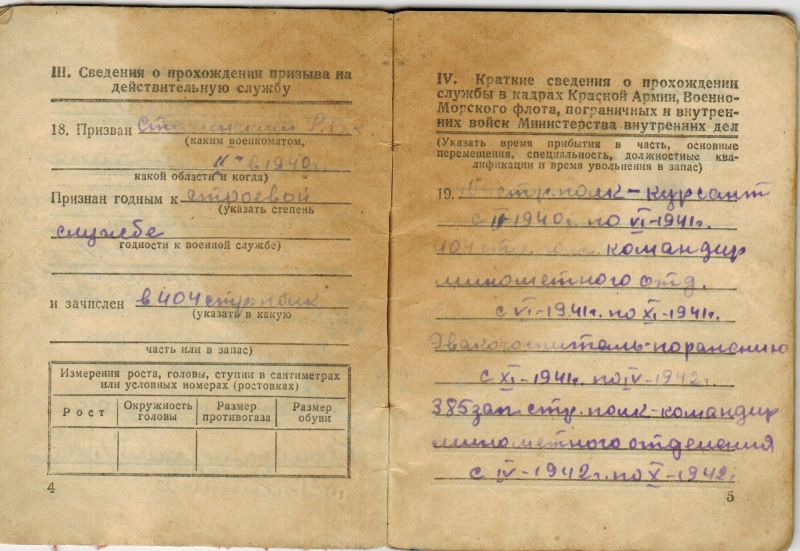 III. Сведения о прохождении призыва на
действительную службу
18. Призван
(каким военкоматом,
II в 1940г.
какой области и когда)
Признан годным к строевой
(указать степень
службе
годности к военной службе)
и зачислен в 404 стр. полк
(указать в какую
часть или в запас)
Измерения роста, головы, ступни в сантиметрах
или условных номерах (ростовках)
Рост
Окружность головы
Размер противогаза
Размер обуви
4
IV. Краткие сведения о прохождении
службы в кадрах Красной Армии, Военно-
Морского флота, пограничных и внутрен-
них войск Министерства внутренних дел
(Указать время прибытия в часть, основные
перемещения, специальность, должностные ква-
лификации и время увольнения в запас)
19. стр. полк - курсант
с II 1940г. по VI-1941г.
404 стр. командир
минометного отд.
с VI-1941г. по XI-1941г.
Эвакогоспиталь-по ранению
с XI-1941г. по IV-1942г.
385 зап. стр. полк-командир
минометного отделения
с IV-1942г. по X-1942г.
5